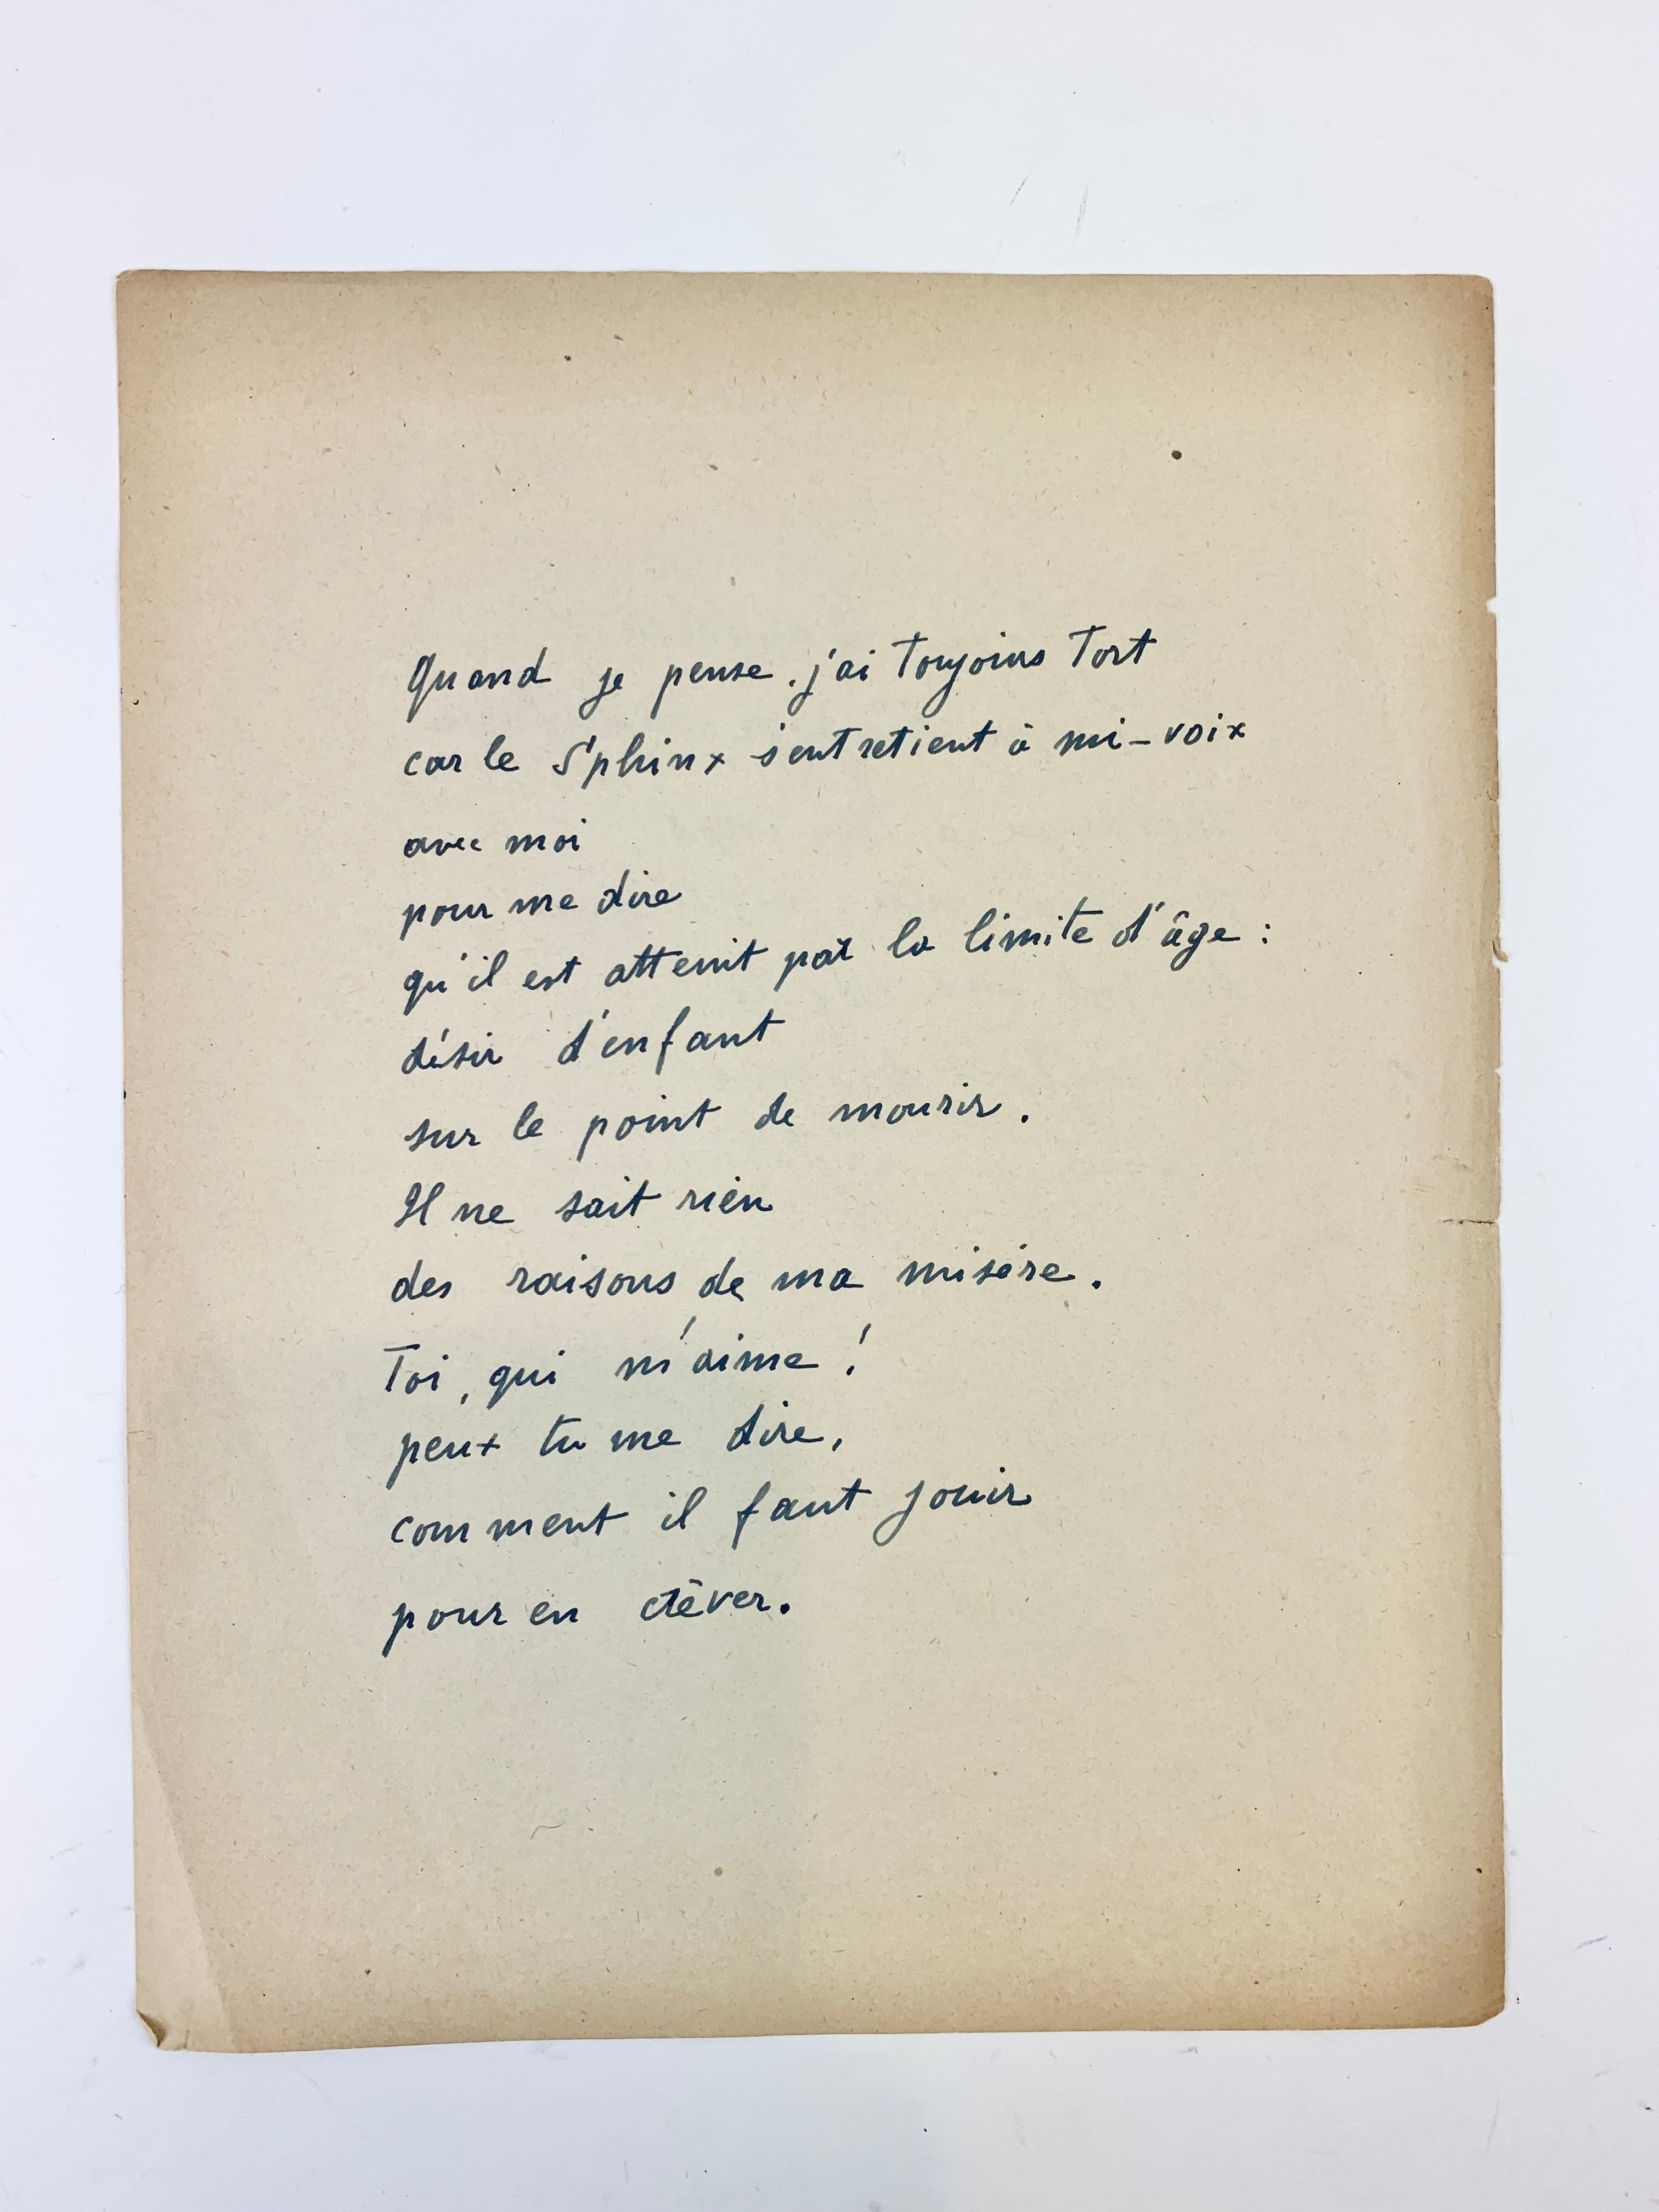 Quand je pense. j'ai Toujours Tort
car le Sphinx s'entretient à mi-voix
avec moi
pour me dire
qu'il est atteint par la limite d'âge :
désir d'enfant
sur le point de mourir.
Il ne sait rien
des raisons de ma misère.
Toi, qui m'aime !
peux tu me dire,
comment il faut jouir
pour en crêver.